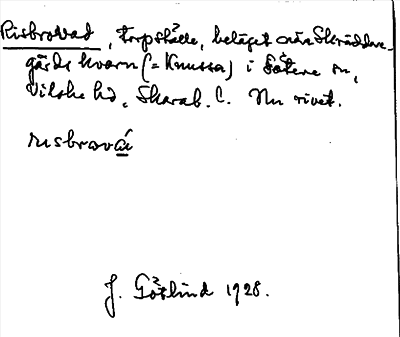 Risbrovad, torpställe, beläget nära Skräddare-
gårds kvarn (= Knussa) i Sätene sn,
Vilske hd, Skarab. l. Nu rivet.
risbrová
J. Götlind 1928.